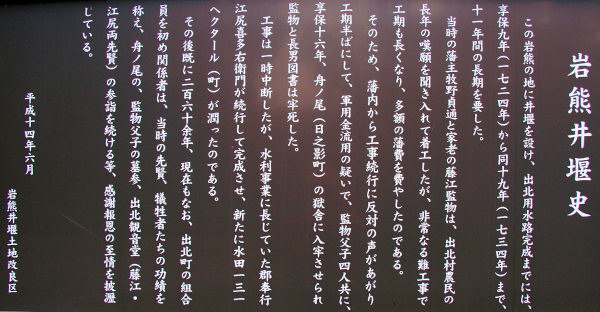 岩熊井堰史
この岩熊の地に井堰を設け、出北用水路完成までには、
享保九年(一七二四年)から同十九年(一七三四年)まで、
十一年間の長期を要した。
当時の藩主牧野貞通と家老の藤江監物は、出北村農民の
長年の嘆願を聞き入れて着工したが、非常なる難工事で
工期も長くなり、多額の藩費を費やしたのである。
そのため、藩内から工事続行に反対の声があがり
工期半ばにして、軍用金流用の疑いで、監物父子四人共に、
享保十六年、舟ノ尾(日之影町)の獄舎に入牢させられ
監物と長男図書は牢死した。
工事は一時中断したが、水利事業に長じていた郡奉行
江尻喜多右衛門が続行して完成させ、新たに水田一三一
ヘクタール(町)が潤ったのである。
その後既に二百六十余年、現在もなお、出北町の組合
員を初め関係者は、当時の先賢、犠牲者たちの功績を
称え、舟ノ尾の、監物父子の墓参、出北観音堂(藤江・
江尻両先賢)の参詣を続ける等、感謝報恩の至情を披瀝
している。
平成十四年六月
岩熊井堰土地改良区